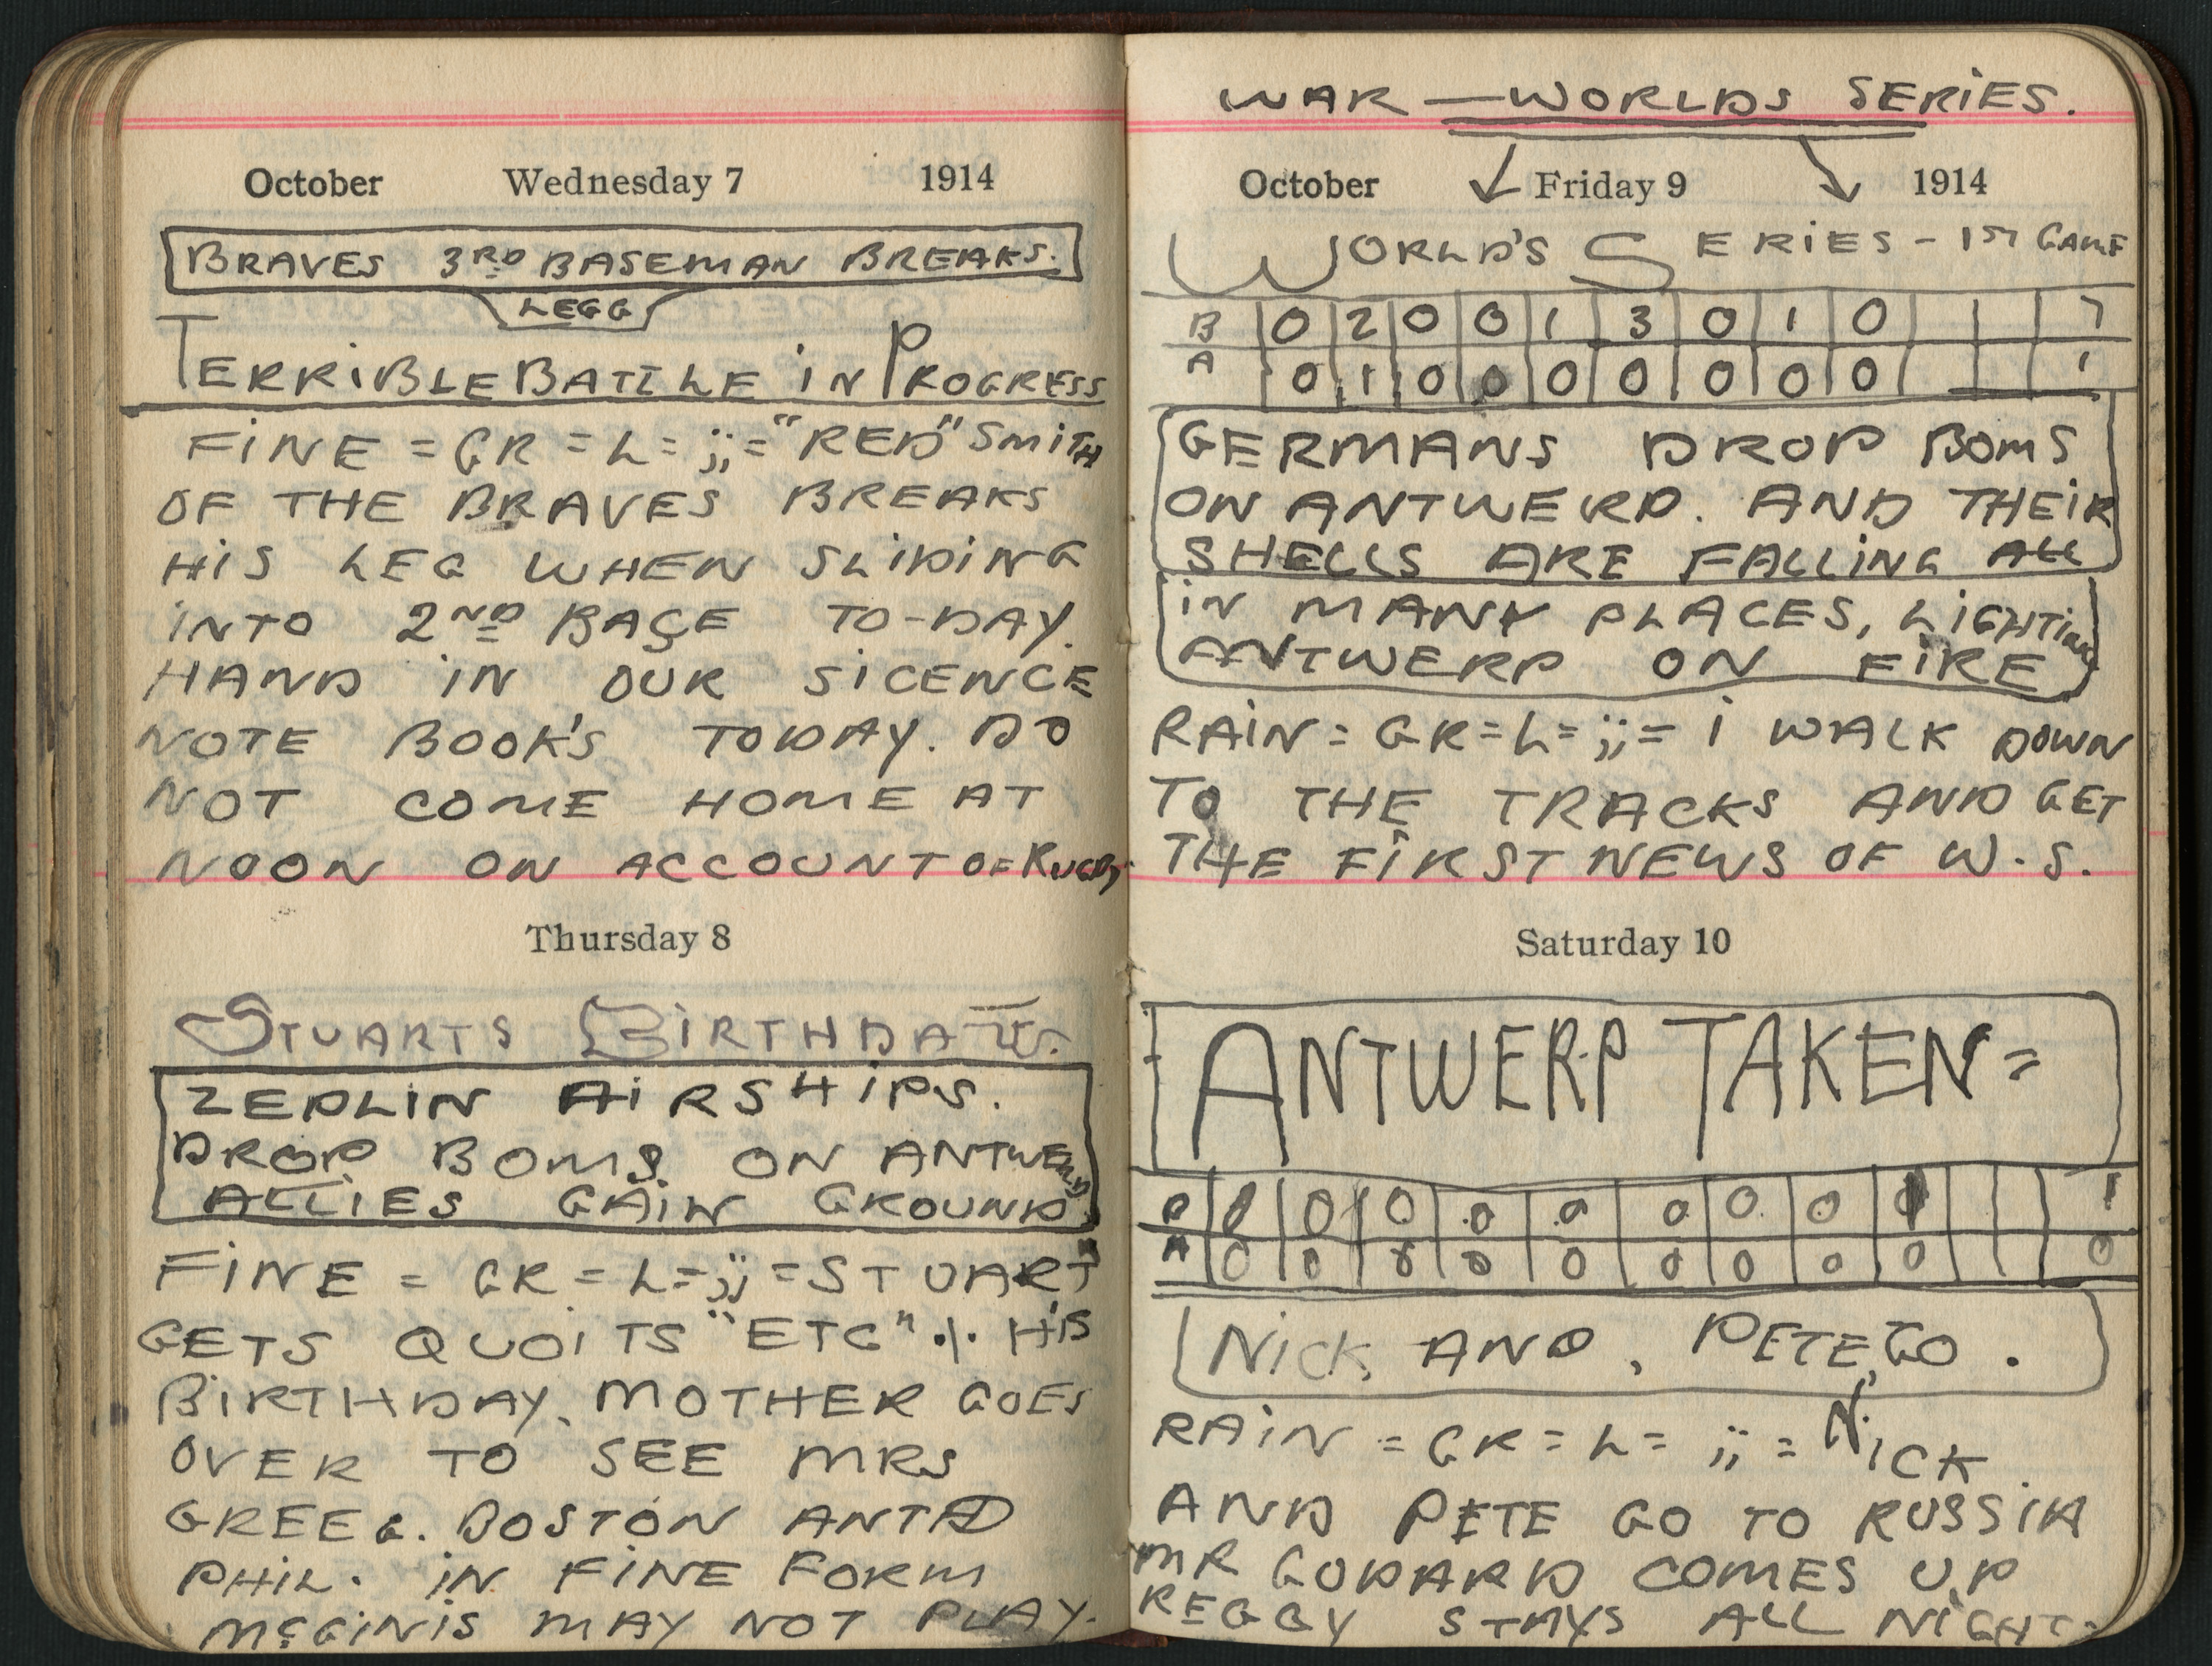 October Wednesday 7 1914
BRAVES 3RD BASEMAN BREAKS.
LEGG
TERRIBLE BATTLE IN PROGRESS
FINE = GR = L = ;; = "RED" SMITH
OF THE BRAVES BREAKS
HIS LEG WHEN SLIDING
INTO 2ND BASE TO-DAY.
HAND IN OUR SICENCE
NOTE BOOK'S TODAY. DO
NOT COME HOME AT
NOON ON ACCOUNT OF RUGBY.
Thursday 8
STUARTS BIRTHDAY.
ZEPLIN AIRSHIPS.
DROP BOMS. ON ANTWERP
ALLIES GAIN GROUND.
FINE = GR = L = ;; = STUART
GETS QUOITS "ETC" ./. HIS
BIRTHDAY. MOTHER GOES
OVER TO SEE MRS
GREEG. BOSTON AND
PHIL. IN FINE FORM
McGINIS MAY NOT PLAY.
WAR — WORLDS SERIES.
October Friday 9 1914
WORLD'S SERIES - 1ST GAME
B 0 2 0 0 1 3 0 1 0 7
A 0 1 0 0 0 0 0 0 0 1
GERMANS DROP BOMS
ON ANTWERP. AND THEIR
SHELLS ARE FALLING ALL
IN MANY PLACES, LIGHTING
ANTWERP ON FIRE
RAIN = GR = L = ;; = I WALK DOWN
TO THE TRACKS AND GET
THE FIRST NEWS OF W.S.
Saturday 10
ANTWERP TAKEN =
0 0 0 0 0 0 0 0 1
A 0 0 0 0 0 0 0 0 0 0
NICK AND, PETE, GO.
RAIN = GR = L = ;; = NICK
AND PETE GO TO RUSSIA
MR GODARD COMES UP
REGGY STAYS ALL NIGHT.